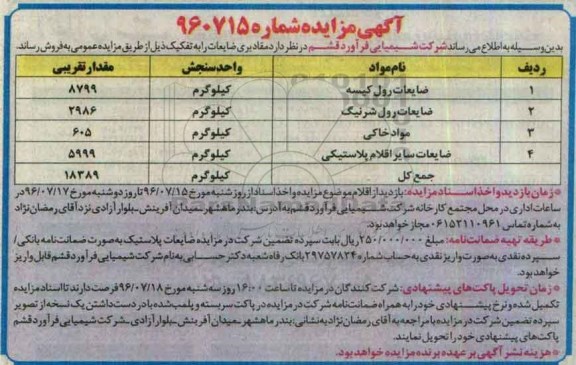 آگهی مزایده شماره ۹۶۰۷۱۵
بدین وسیله به اطلاع می رساند شرکت شیمیایی فرآورد قشم در نظر دارد مقادیری ضایعات را به تفکیک ذیل از طریق مزایده عمومی به فروش رساند.
ردیف نام مواد واحد سنجش مقدار تقریبی
۱ ضایعات رول کیسه کیلوگرم ۸۷۹۹
۲ ضایعات رول شرنیگ کیلوگرم ۲۹۸۶
۳ مواد خاکی کیلوگرم ۶۰۵
۴ ضایعات سایر اقلام پلاستیکی کیلوگرم ۵۹۹۹
جمع کل کیلوگرم ۱۸۳۸۹
* زمان بازدید و اخذ اسناد مزایده: بازدید از اقلام موضوع مزایده و اخذ اسناد از روز شنبه مورخ ۹۶/۰۷/۱۵ تا روز دوشنبه مورخ ۹۶/۰۷/۱۷ در
ساعات اداری در محل مجتمع کارخانه شرکت شیمیایی فرآورد قشم به آدرس: بندر ماهشهر_میدان آفرینش_بلوار آزادی نزد آقای رمضان نژاد
به شماره تماس ۰۶۱۵۲۱۱۰۹۶۱ مجاز خواهد بود.
* طریقه تهیه ضمانت نامه: مبلغ ۲۵۰/۰۰۰/۰۰۰ ریال بابت سپرده تضمین شرکت در مزایده ضایعات پلاستیک به صورت ضمانت نامه بانکی/
سپرده نقدی به صورت واریز نقدی به حساب شماره ۲۹۷۵۷۸۲۴ بانک رفاه شعبه دکتر حسابی به نام شرکت شیمیایی فرآورد قشم قابل واریز
خواهد بود.
* زمان تحویل پاکت های پیشنهادی: شرکت کنندگان در مزایده تا ساعت ۱۶:۰۰ روز سه شنبه مورخ ۹۶/۰۷/۱۸ فرصت دارند تا اسناد مزایده
تکمیل شده و نرخ پیشنهادی خود را به همراه ضمانت نامه شرکت در مزایده در پاکت سربسته و پلمب شده با در دست داشتن یک نسخه از تصویر
سپرده تضمین شرکت در مزایده با مراجعه به آقای رمضان نژاد به نشانی: بندر ماهشهر_میدان آفرینش_بلوار آزادی_شرکت شیمیایی فرآورد قشم
پاکت های پیشنهادی خود را تحویل نمایند.
* هزینه نشر آگهی بر عهده برنده مزایده خواهد بود.